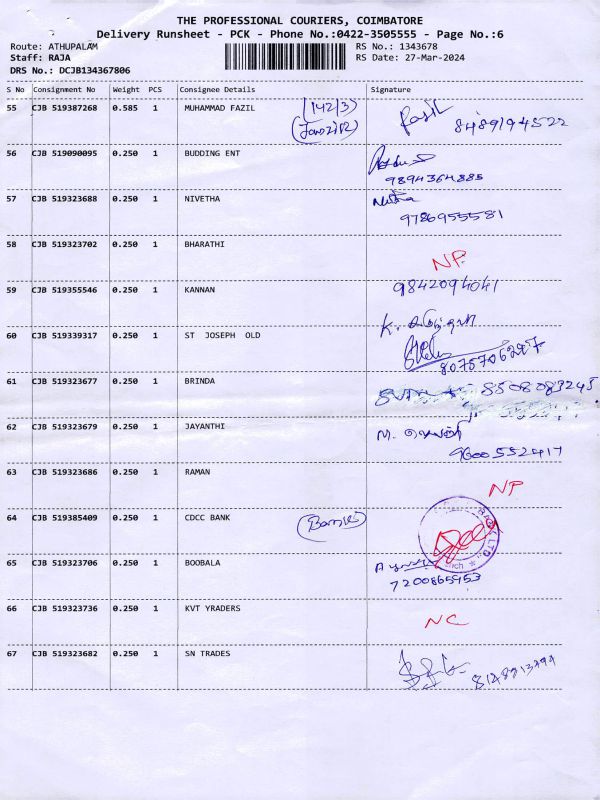 THE PROFESSIONAL COURIERS, COIMBATORE
Delivery Runsheet - PCK - Phone No.:0422-3505555 - Page No.:6
Route: ATHUPALAM
RS No.: 1343678
Staff: RAJA
RS Date: 27-Mar-2024
DRS No.: DCJB134367806
S No Consignment No Weight PCS Consignee Details Signature
55 CJB 519387268 0.585 1 MUHAMMAD FAZIL (142/3) Fazil
8489194522
56 CJB 519090095 0.250 1 BUDDING ENT
9894364885
57 CJB 519323688 0.250 1 NIVETHA
9786955581
58 CJB 519323702 0.250 1 BHARATHI
NP
59 CJB 519355546 0.250 1 KANNAN 9842094041
K.
60 CJB 519339317 0.250 1 ST JOSEPH OLD
8075706227
61 CJB 519323677 0.250 1 BRINDA 8508083245
62 CJB 519323679 0.250 1 JAYANTHI M.
9600552417
63 CJB 519323686 0.250 1 RAMAN
NP
64 CJB 519385409 0.250 1 CDCC BANK (Bank)
65 CJB 519323706 0.250 1 BOOBALA
7200865953
66 CJB 519323736 0.250 1 KVT YRADERS
NC
67 CJB 519323682 0.250 1 SN TRADES